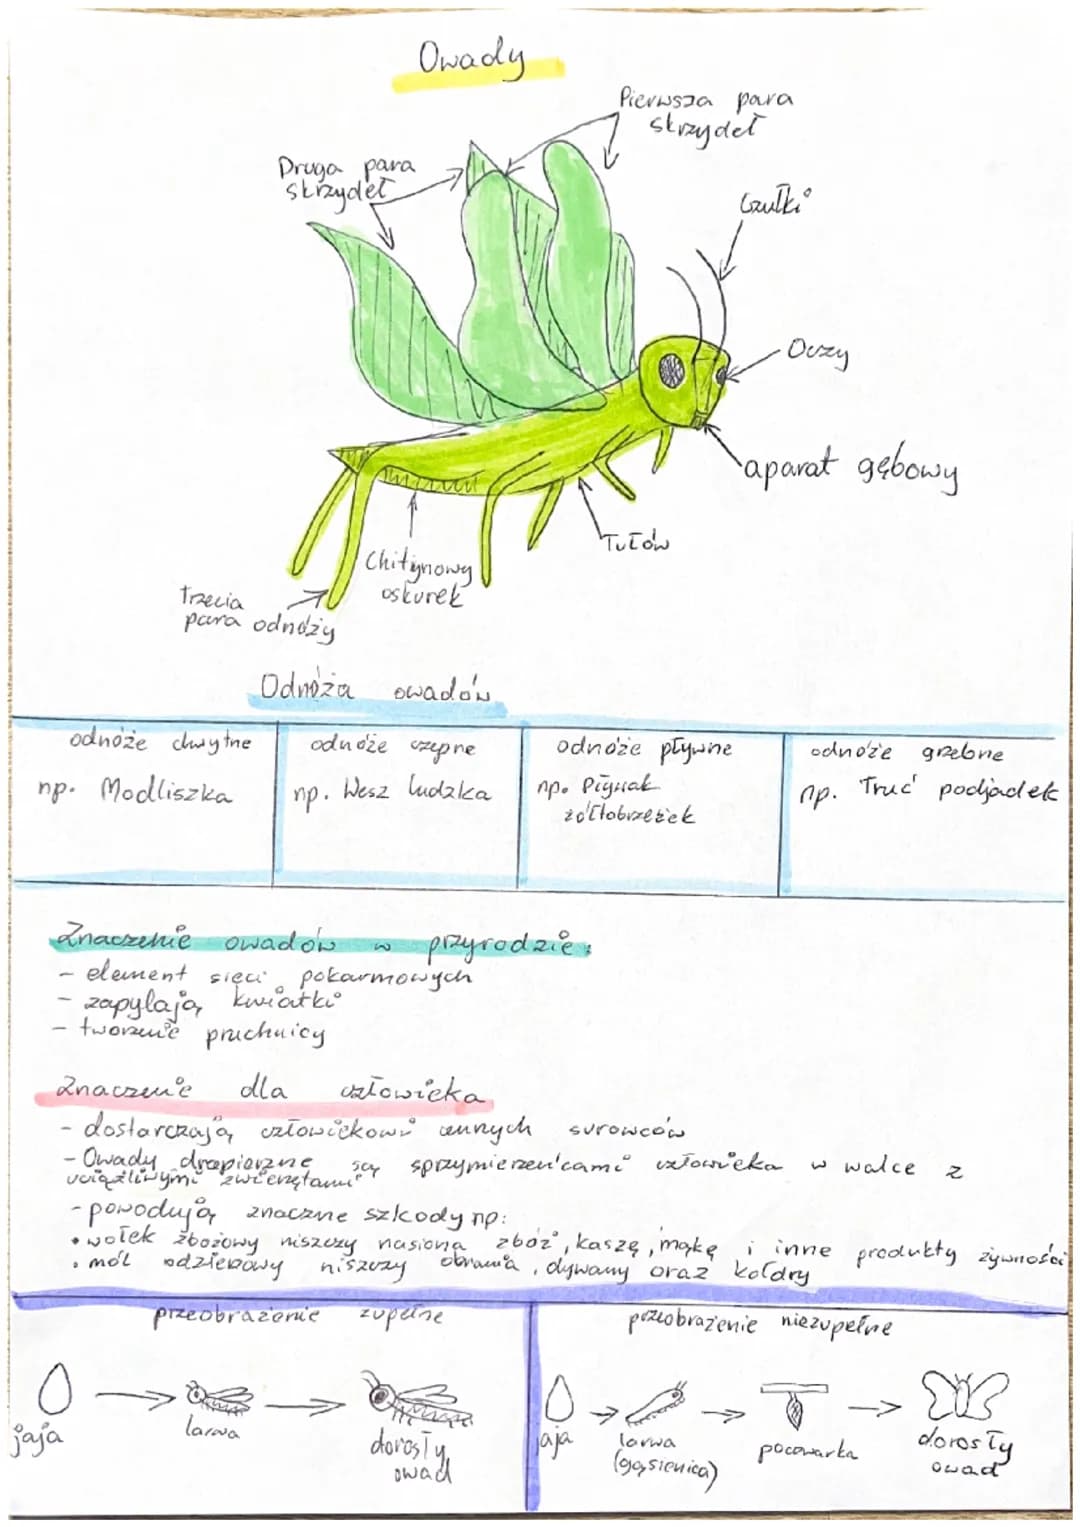 Owady
Pierwsza para
skrzydeł
Druga para
skrzydeł
Czułki
Oczy
aparat gębowy
Tułów
Chitynowy
oskurek
Trzecia
para odnóży
Odnóża owadów
odnóże chwytne
np. Modliszka
odnóże czepne
np. Wesz ludzka
odnóże pływne
np. Pływak
żółtobrzeżek
odnóże grzebne
np. Truć podjadek
Znaczenie owadów w przyrodzie:
- element sieci pokarmowych
- zapylają kwiatki
- tworzenie pruchnicy
Znaczenie dla człowieka
- dostarczają człowiekowi cennych surowców
- Owady drapierzne są sprzymierzeńcami człowieka w walce z
uciążliwymi zwierzętami
- powodują znaczne szkody np:
• wołek zbożowy niszczy nasiona zbóż, kaszę, mąkę i inne produkty żywności
• mól odzieżowy niszczy ubrania, dywany oraz kołdry
przeobrażenie zupełne
jaja
larwa
dorosły
owad
przeobrażenie niezupełne
jaja
larwa
(gąsienica)
poczwarka
dorosły
owad